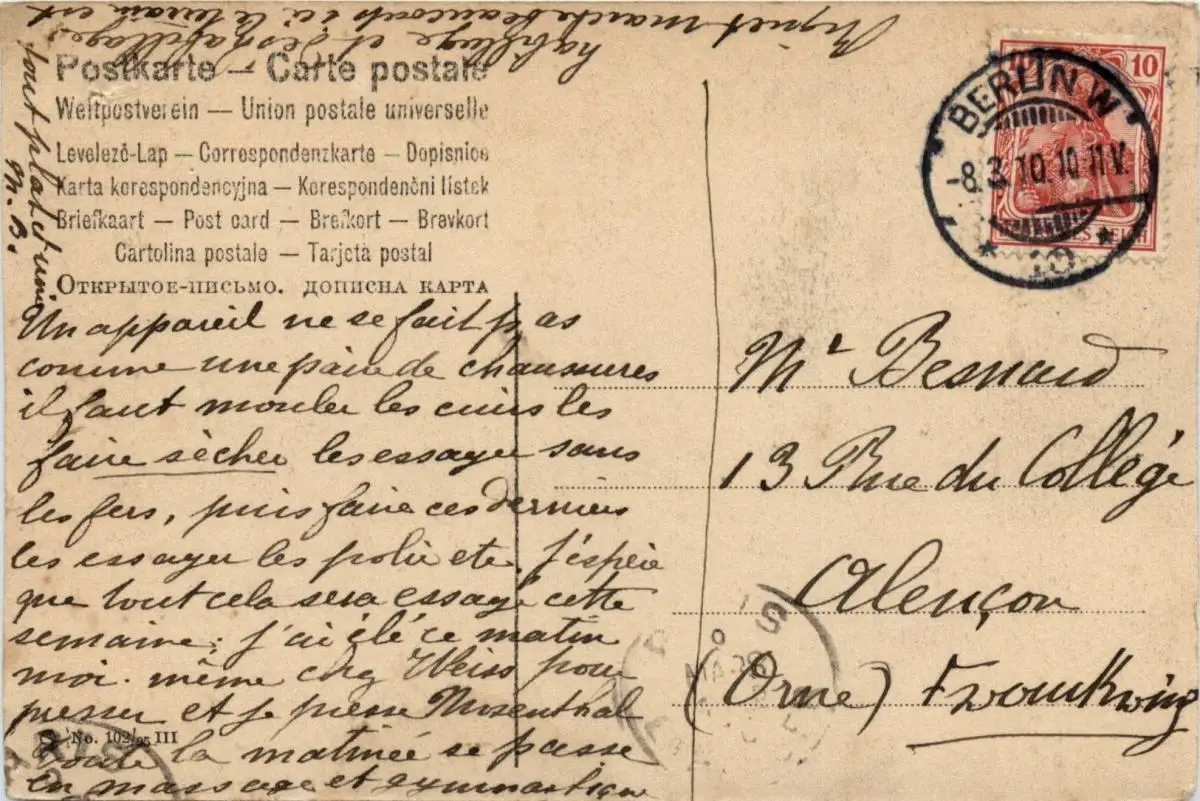 Miquet marche beaucoup ici le terrain est
tout plat et uni
habillage et déshabillage.
M. B.
Postkarte — Carte postale
Weltpostverein — Union postale universelle
Levelező-Lap — Correspondenzkarte — Dopisnice
Karta korespondencyjna — Korespondenční lístek
Briefkaart — Post card — Brefkort — Brevkort
Cartolina postale — Tarjeta postal
Открытое-письмо. дописна карта
Un appareil ne se fait pas
comme une paire de chaussures
il faut mouler les cuirs les
faire sècher les essayer sans
les fers, puis faire ces derniers
les essayer les polir etc. J'espère
que tout cela sera essayé cette
semaine; j'ai été ce matin
moi-même chez Weiss pour
presser et je presse Mosenthal
No. 102/05 III
toute la matinée se passe
en massage et gymnastique
10
BERLIN W
-8.3.10.10-11V.
*10*
Mr Besnard
13 Rue du Collége
Alençon
(Orne) Frankreich
PARIS